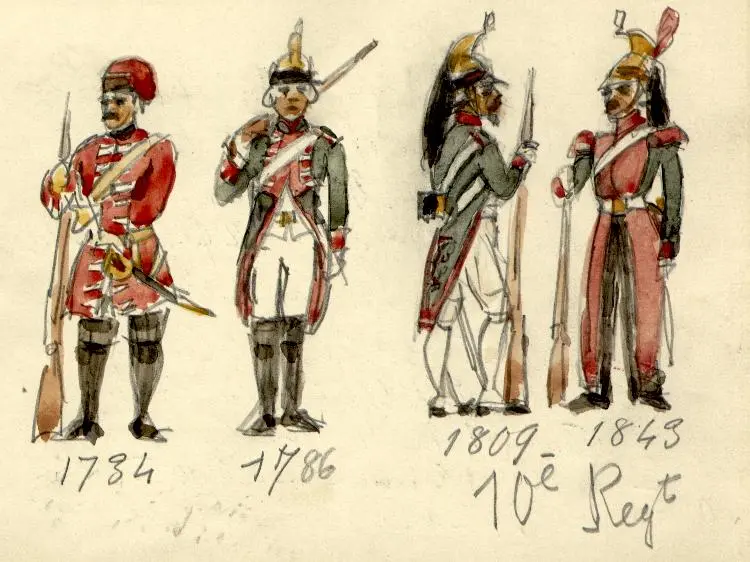 1734
1786
1809 1843
10e Regt